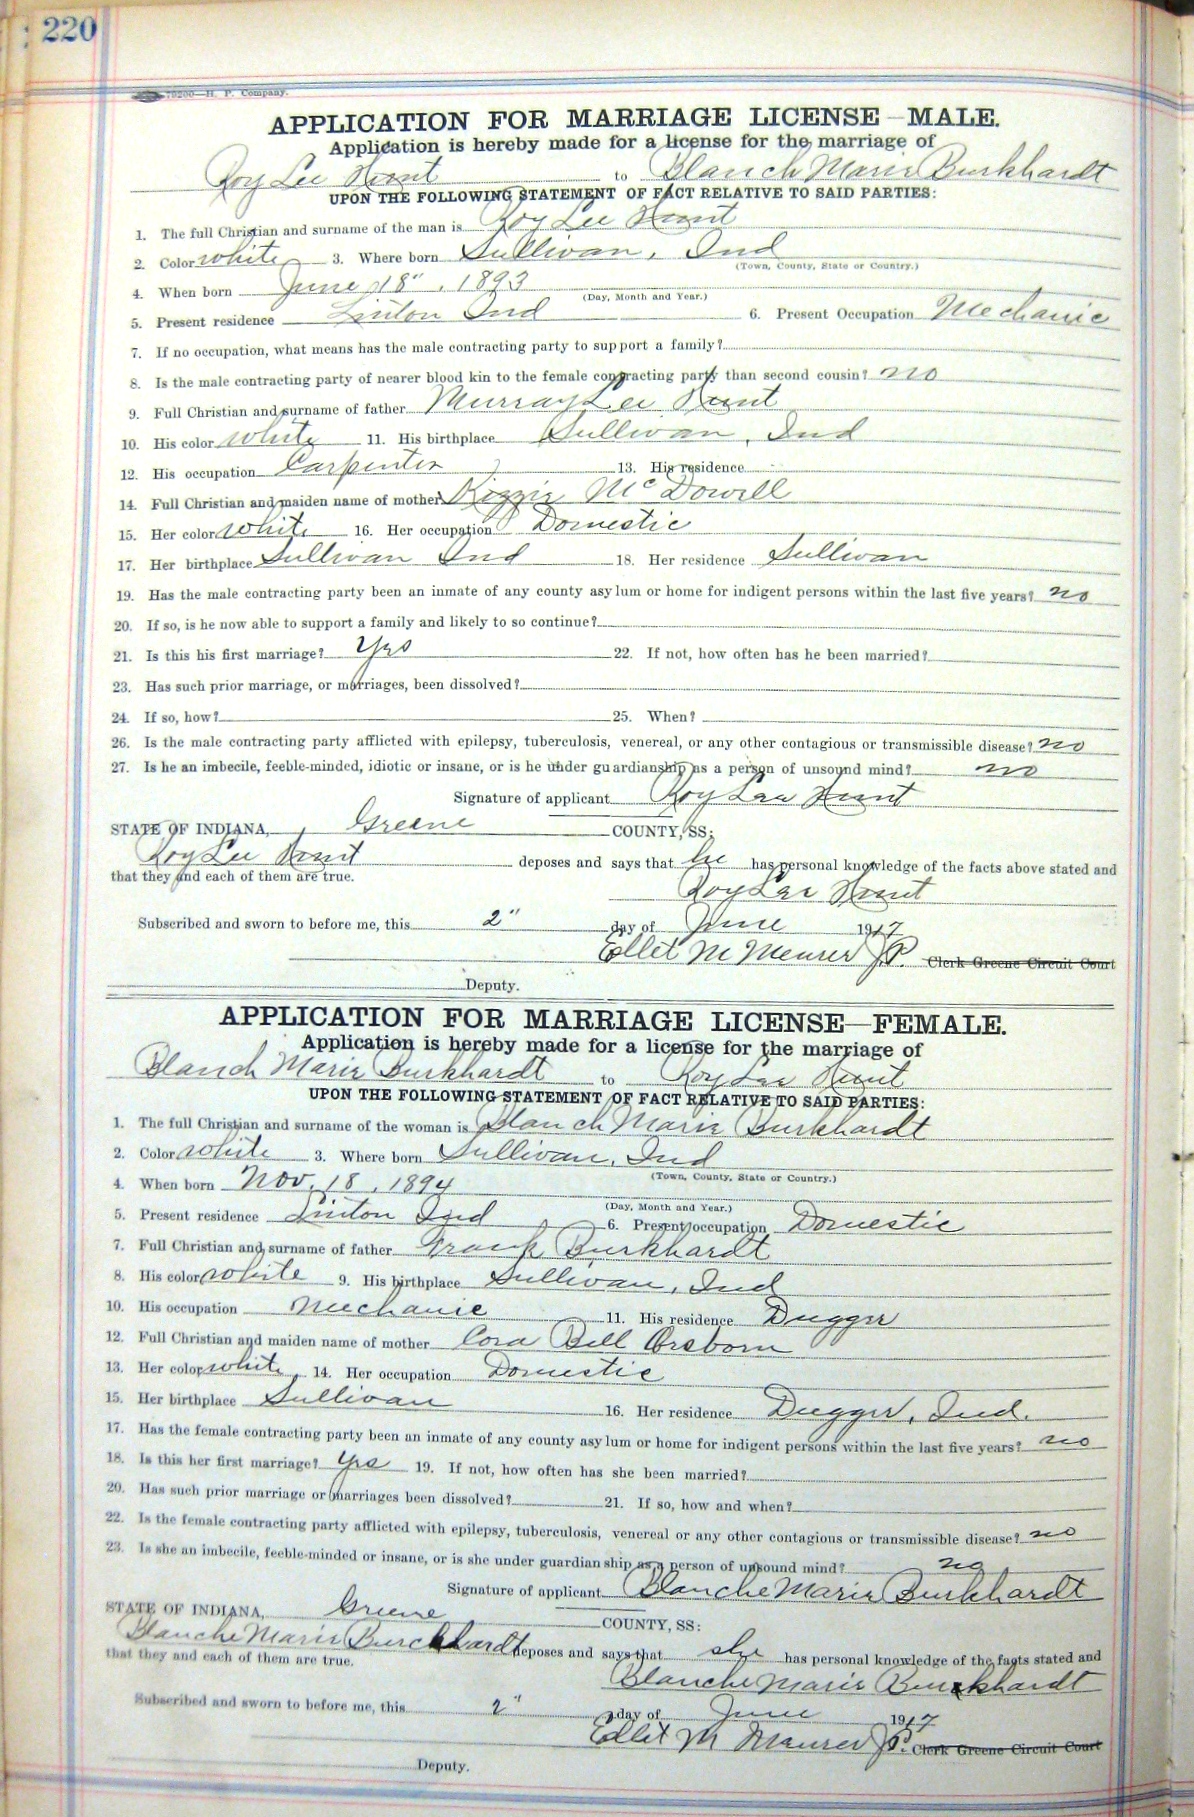 220
75200—H. P. Company.
APPLICATION FOR MARRIAGE LICENSE—MALE.
Application is hereby made for a license for the marriage of
Roy Lee Hunt to Blanch Marie Burkhardt
UPON THE FOLLOWING STATEMENT OF FACT RELATIVE TO SAID PARTIES:
1. The full Christian and surname of the man is Roy Lee Hunt
2. Color white 3. Where born Sullivan, Ind
(Town, County, State or Country.)
4. When born June 18", 1893
(Day, Month and Year.)
5. Present residence Linton Ind 6. Present Occupation Mechanic
7. If no occupation, what means has the male contracting party to support a family?
8. Is the male contracting party of nearer blood kin to the female contracting party than second cousin? no
9. Full Christian and surname of father Murray Lee Hunt
10. His color white 11. His birthplace Sullivan, Ind
12. His occupation Carpenter 13. His residence
14. Full Christian and maiden name of mother Kizzie McDowell
15. Her color white 16. Her occupation Domestic
17. Her birthplace Sullivan Ind 18. Her residence Sullivan
19. Has the male contracting party been an inmate of any county asylum or home for indigent persons within the last five years? no
20. If so, is he now able to support a family and likely to so continue?
21. Is this his first marriage? Yes 22. If not, how often has he been married?
23. Has such prior marriage, or marriages, been dissolved?
24. If so, how? 25. When?
26. Is the male contracting party afflicted with epilepsy, tuberculosis, venereal, or any other contagious or transmissible disease? no
27. Is he an imbecile, feeble-minded, idiotic or insane, or is he under guardianship as a person of unsound mind? no
Signature of applicant Roy Lee Hunt
STATE OF INDIANA, Greene COUNTY, SS:
Roy Lee Hunt deposes and says that he has personal knowledge of the facts above stated and
that they and each of them are true.
Roy Lee Hunt
Subscribed and sworn to before me, this 2" day of June 1917
Ellet M Meurer J.P. Clerk Greene Circuit Court
Deputy.
APPLICATION FOR MARRIAGE LICENSE—FEMALE.
Application is hereby made for a license for the marriage of
Blanch Marie Burkhardt to Roy Lee Hunt
UPON THE FOLLOWING STATEMENT OF FACT RELATIVE TO SAID PARTIES:
1. The full Christian and surname of the woman is Blanch Marie Burkhardt
2. Color white 3. Where born Sullivan, Ind
(Town, County, State or Country.)
4. When born Nov. 18, 1894
(Day, Month and Year.)
5. Present residence Linton Ind 6. Present occupation Domestic
7. Full Christian and surname of father Frank Burkhardt
8. His color white 9. His birthplace Sullivan, Ind
10. His occupation Mechanic 11. His residence Dugger
12. Full Christian and maiden name of mother Cora Bell Orsborn
13. Her color white 14. Her occupation Domestic
15. Her birthplace Sullivan 16. Her residence Dugger, Ind.
17. Has the female contracting party been an inmate of any county asylum or home for indigent persons within the last five years? no
18. Is this her first marriage? Yes 19. If not, how often has she been married?
20. Has such prior marriage or marriages been dissolved? 21. If so, how and when?
22. Is the female contracting party afflicted with epilepsy, tuberculosis, venereal or any other contagious or transmissible disease? no
23. Is she an imbecile, feeble-minded or insane, or is she under guardianship as a person of unsound mind? no
Signature of applicant Blanche Marie Burkhardt
STATE OF INDIANA, Greene COUNTY, SS:
Blanche Marie Burckhardt deposes and says that she has personal knowledge of the facts stated and
that they and each of them are true.
Blanche Marie Burkhardt
Subscribed and sworn to before me, this 2" day of June 1917
Ellet M Meurer J.P. Clerk Greene Circuit Court
Deputy.